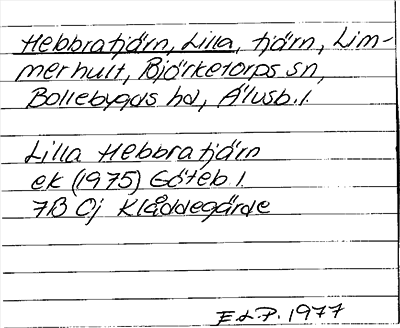 Hebbratjärn, Lilla, tjärn, Lim-
merhult, Björketorps sn,
Bollebygds hd, Älvsb. l.
Lilla Hebbratjärn
ek (1975) Göteb l.
7B 0j Klåddegärde
E L P. 1977